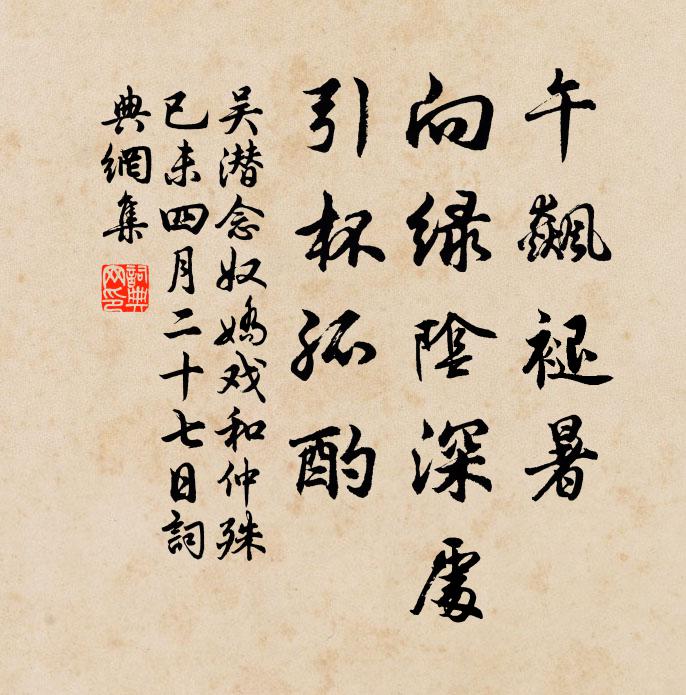 午飙褪暑
向绿陰深處
引杯孤酌
吴潜念奴嬌戏和仲殊
已未四月二十七日詞
典網集
詞典
网印